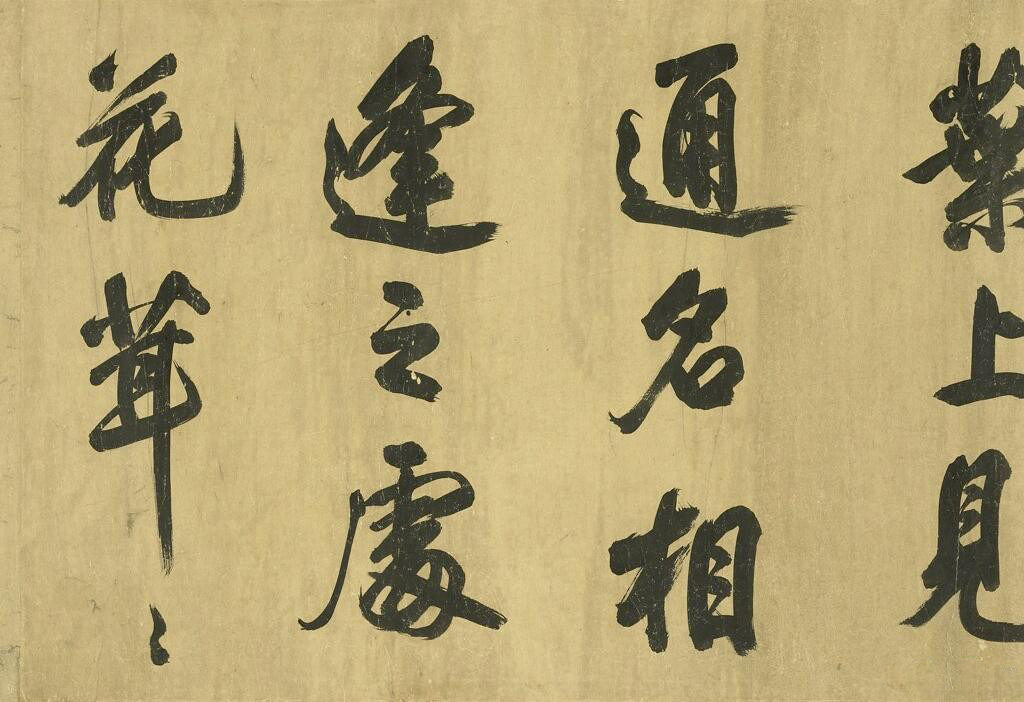 葉上見
通名相
逢之處
花茸〻